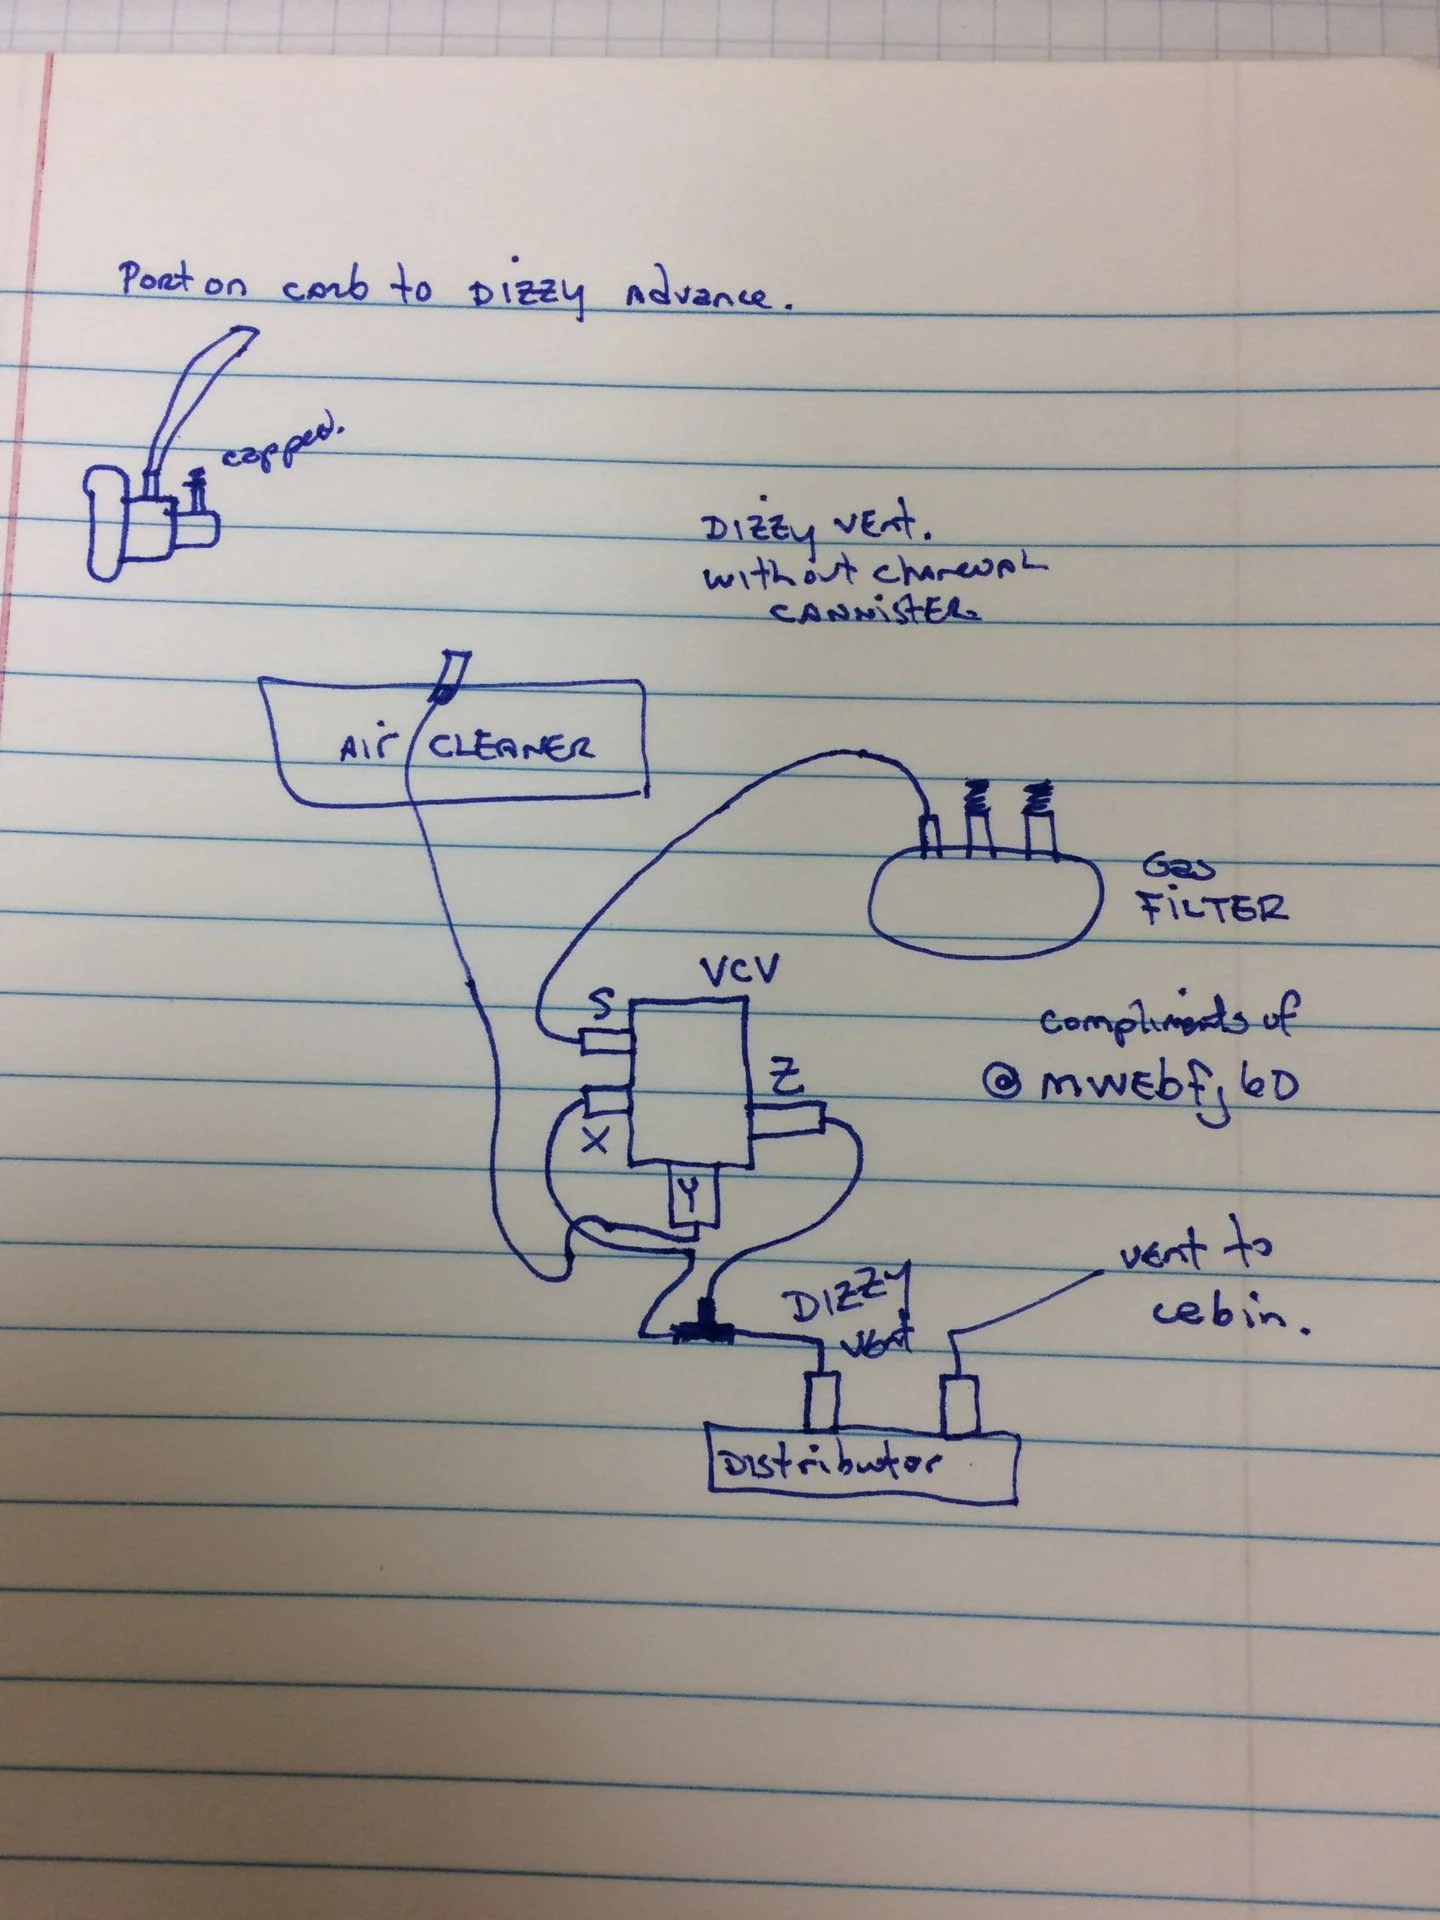 Port on carb to Dizzy Advance.
capped.
Dizzy vent.
without charcoal
cannister.
Air CLEANER
Gas
FiLTER
VCV
S
Z
X
Y
compliments of
@ mwebfj60
Dizzy
vent
vent to
cebin.
Distributor